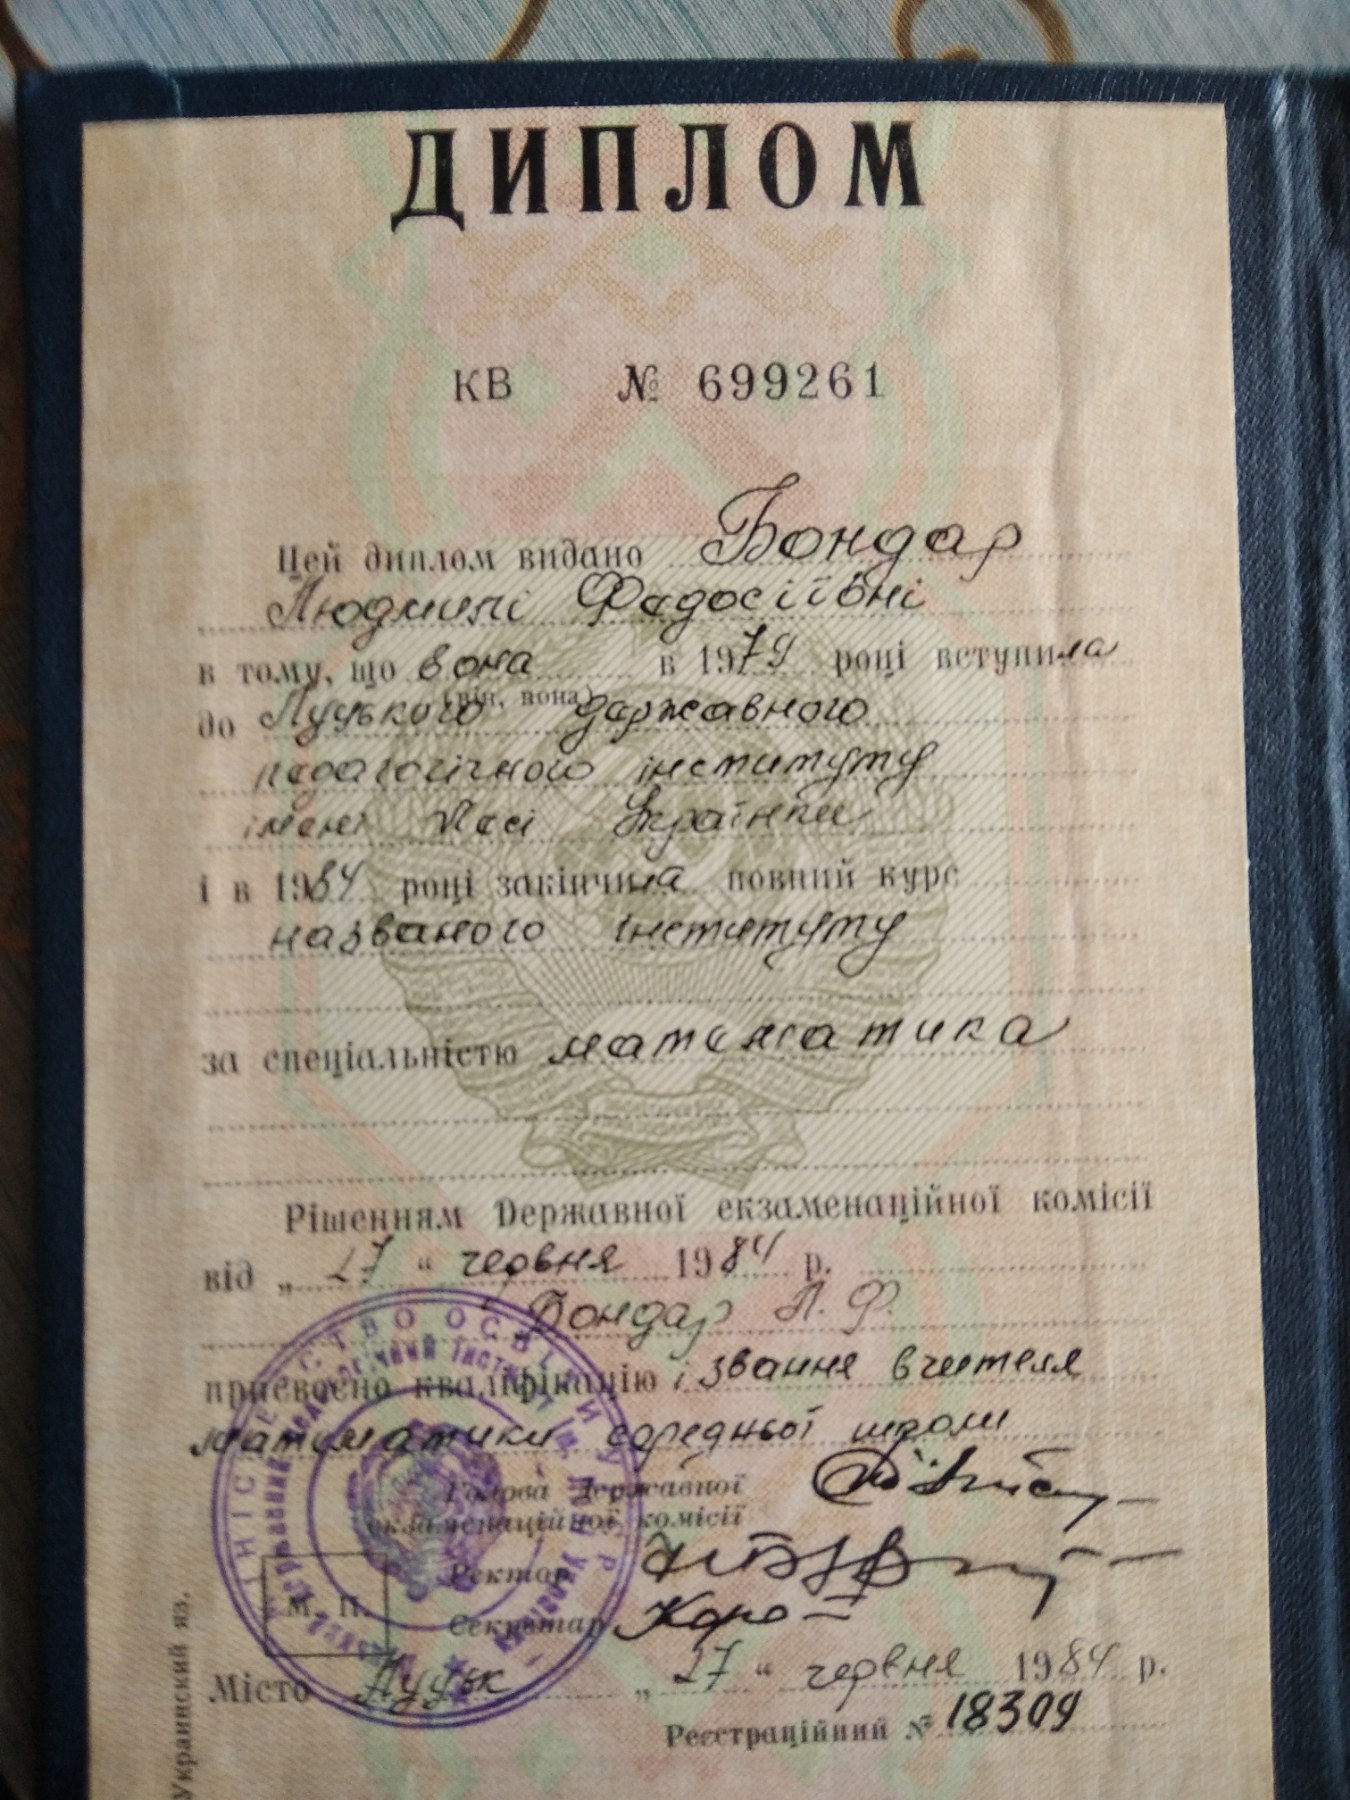 ДИПЛОМ
КВ № 699261
Цей диплом видано Бондар
Людмилі Федосіївні
в тому, що вона в 1979 році вступила
(він, вона)
до Луцького державного
педагогічного інституту
імені Лесі Українки
і в 1984 році закінчила повний курс
названого інституту
за спеціальністю математика
Рішенням Державної екзаменаційної комісії
від „27“ червня 1984 р.
Бондар Л. Ф.
присвоєно кваліфікацію і звання вчителя
математики середньої школи
Голова Державної
екзаменаційної комісії
Ректор
Секретар
М. П.
Місто Луцьк „27“ червня 1984 р.
Реєстраційний № 18309
Украинский яз.